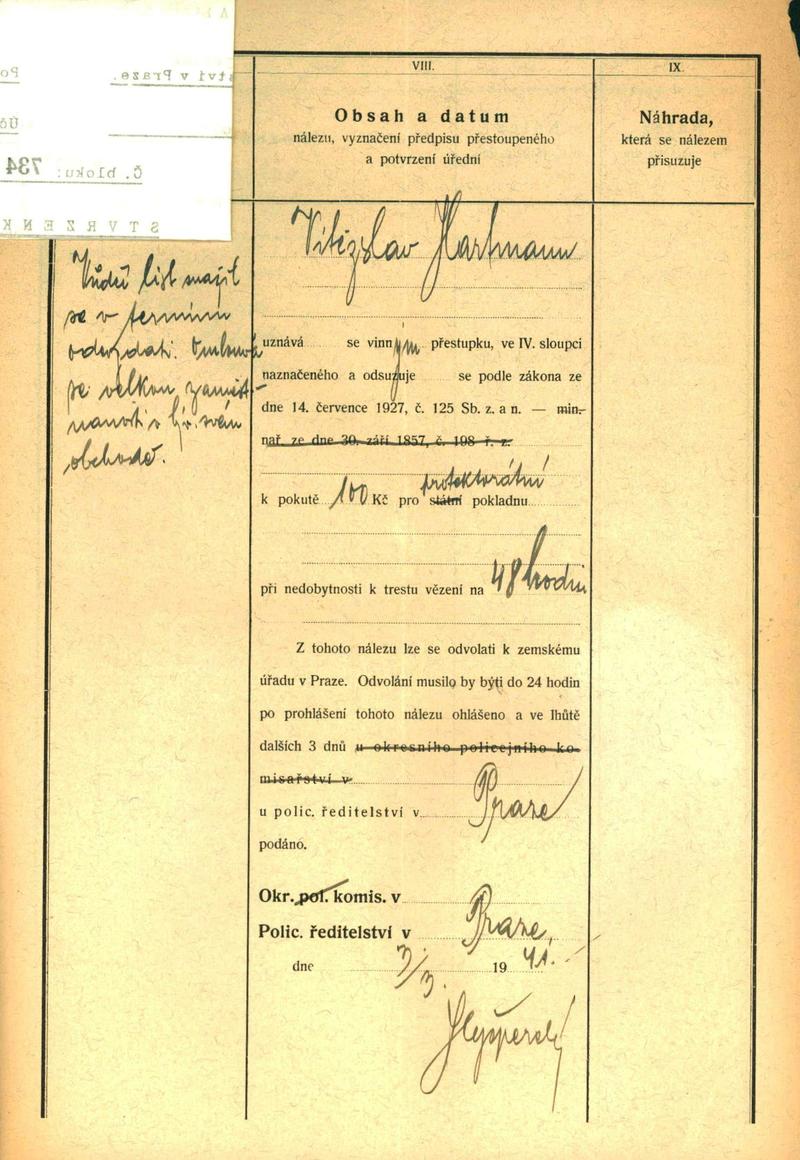 tví v Praze.
Č. bloku: 734
STVRZENK
VIII.
Obsah a datum
nálezu, vyznačení předpisu přestoupeného
a potvrzení úřední
IX.
Náhrada,
která se nálezem
přisuzuje
list
se v termínu
odevzdati.
se velkou zaměst-
naností v svém
obchodě.
Vítězslav Hartmann
uznává se vinným přestupku, ve IV. sloupci
naznačeného a odsuzuje se podle zákona ze
dne 14. července 1927, č. 125 Sb. z. a n. — min.
nař. ze dne 30. září 1857, č. 198 ř. z.
protektorátní
k pokutě 100 Kč pro státní pokladnu
při nedobytnosti k trestu vězení na 48 hodin
Z tohoto nálezu lze se odvolati k zemskému
úřadu v Praze. Odvolání musilo by býti do 24 hodin
po prohlášení tohoto nálezu ohlášeno a ve lhůtě
dalších 3 dnů u okresního policejního ko-
misařství v
u polic. ředitelství v Praze
podáno.
Okr. pol. komis. v
Polic. ředitelství v Praze,
dne 3/3. 1941.